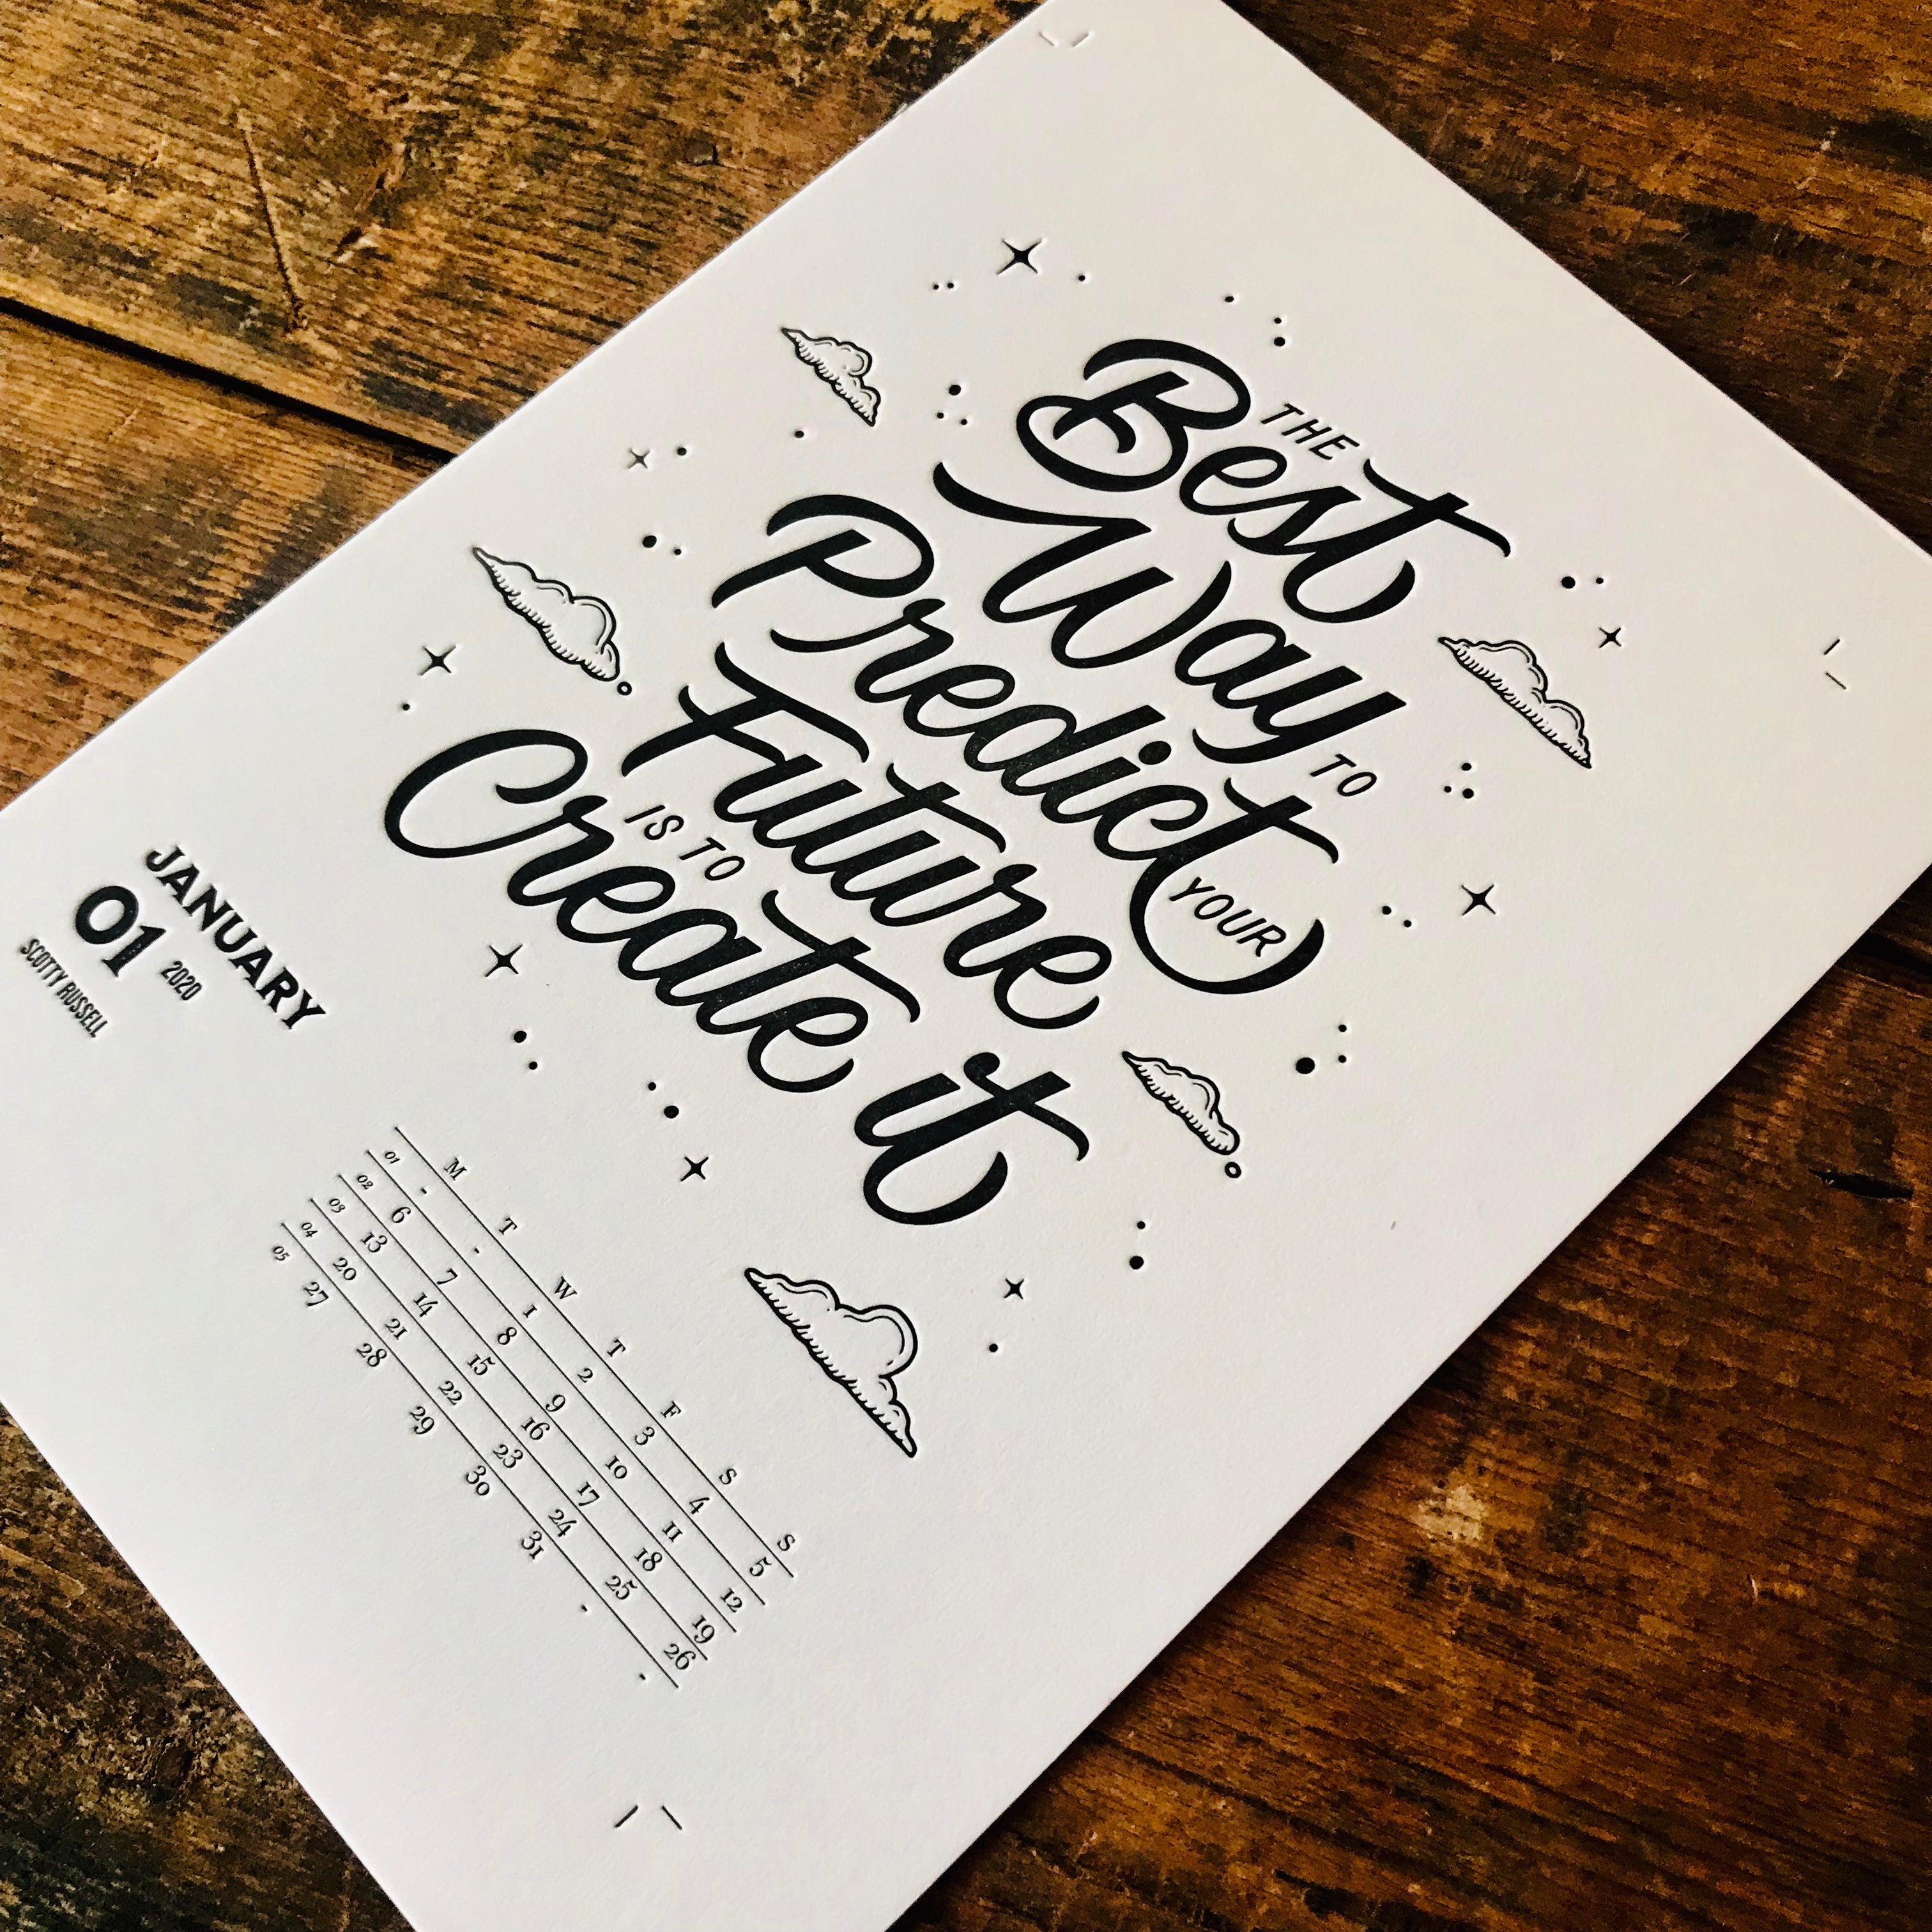 THE
Best
Way TO
Predict YOUR
Future
IS TO
Create it
JANUARY
01 2020
SCOTTY RUSSELL
M T W T F S S
01 - - 1 2 3 4 5
02 6 7 8 9 10 11 12
03 13 14 15 16 17 18 19
04 20 21 22 23 24 25 26
05 27 28 29 30 31 - -